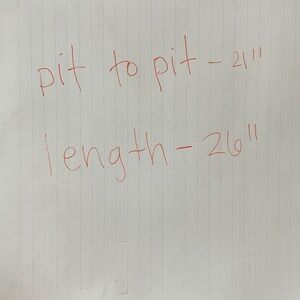 pit to pit - 21"
length - 26"